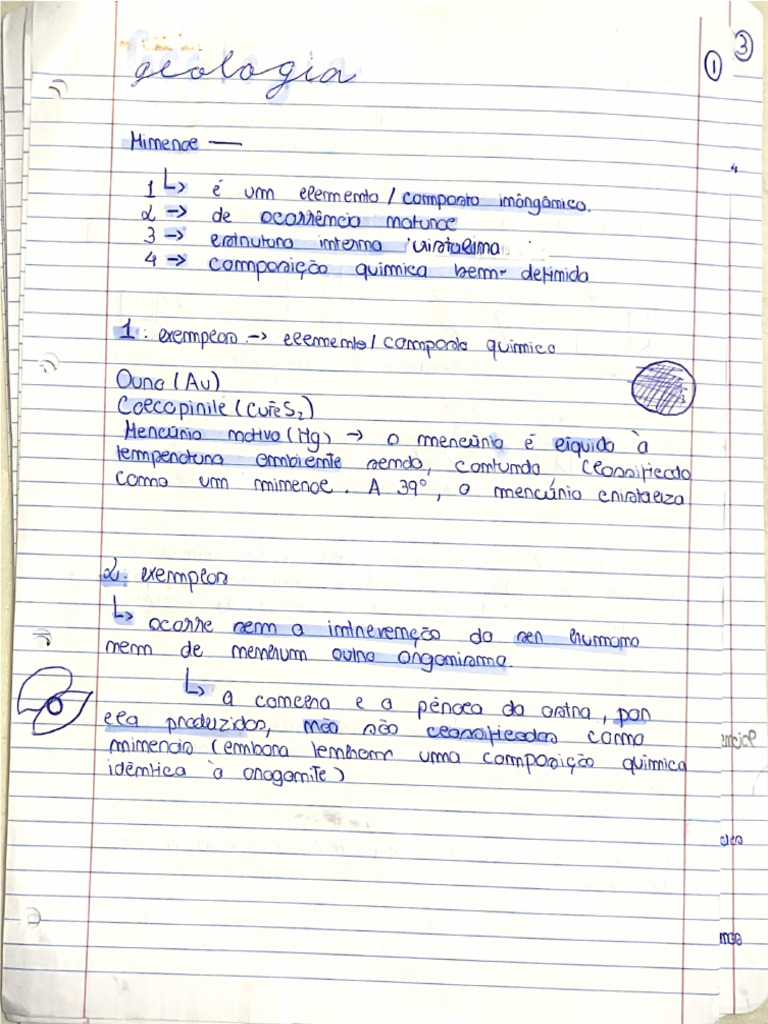 geologia
1
3
Mineral —
1 ↳ é um elemento / composto inôrgâmico.
2 → de ocorrência natural
3 → estrutura interna cristalina
4 → composição química bem-definida
1. exemplos → elemento / composto químico
Ouro (Au)
Calcopirile (CuFeS2)
Mercúrio nativo (Hg) → o mercúrio é líquido à
temperatura ambiente sendo, contundo, classificado
como um mineral. A 39°, o mercúrio cristaliza
2. exemplos
↳ ocorre sem a intrevenção do ser humano
nem de nenhum outro organismo.
↳ a concha e a pérola da ostra, por
ela produzidos, não são classificados como
minerais (embora tenham uma composição química
idêntica à aragonite)